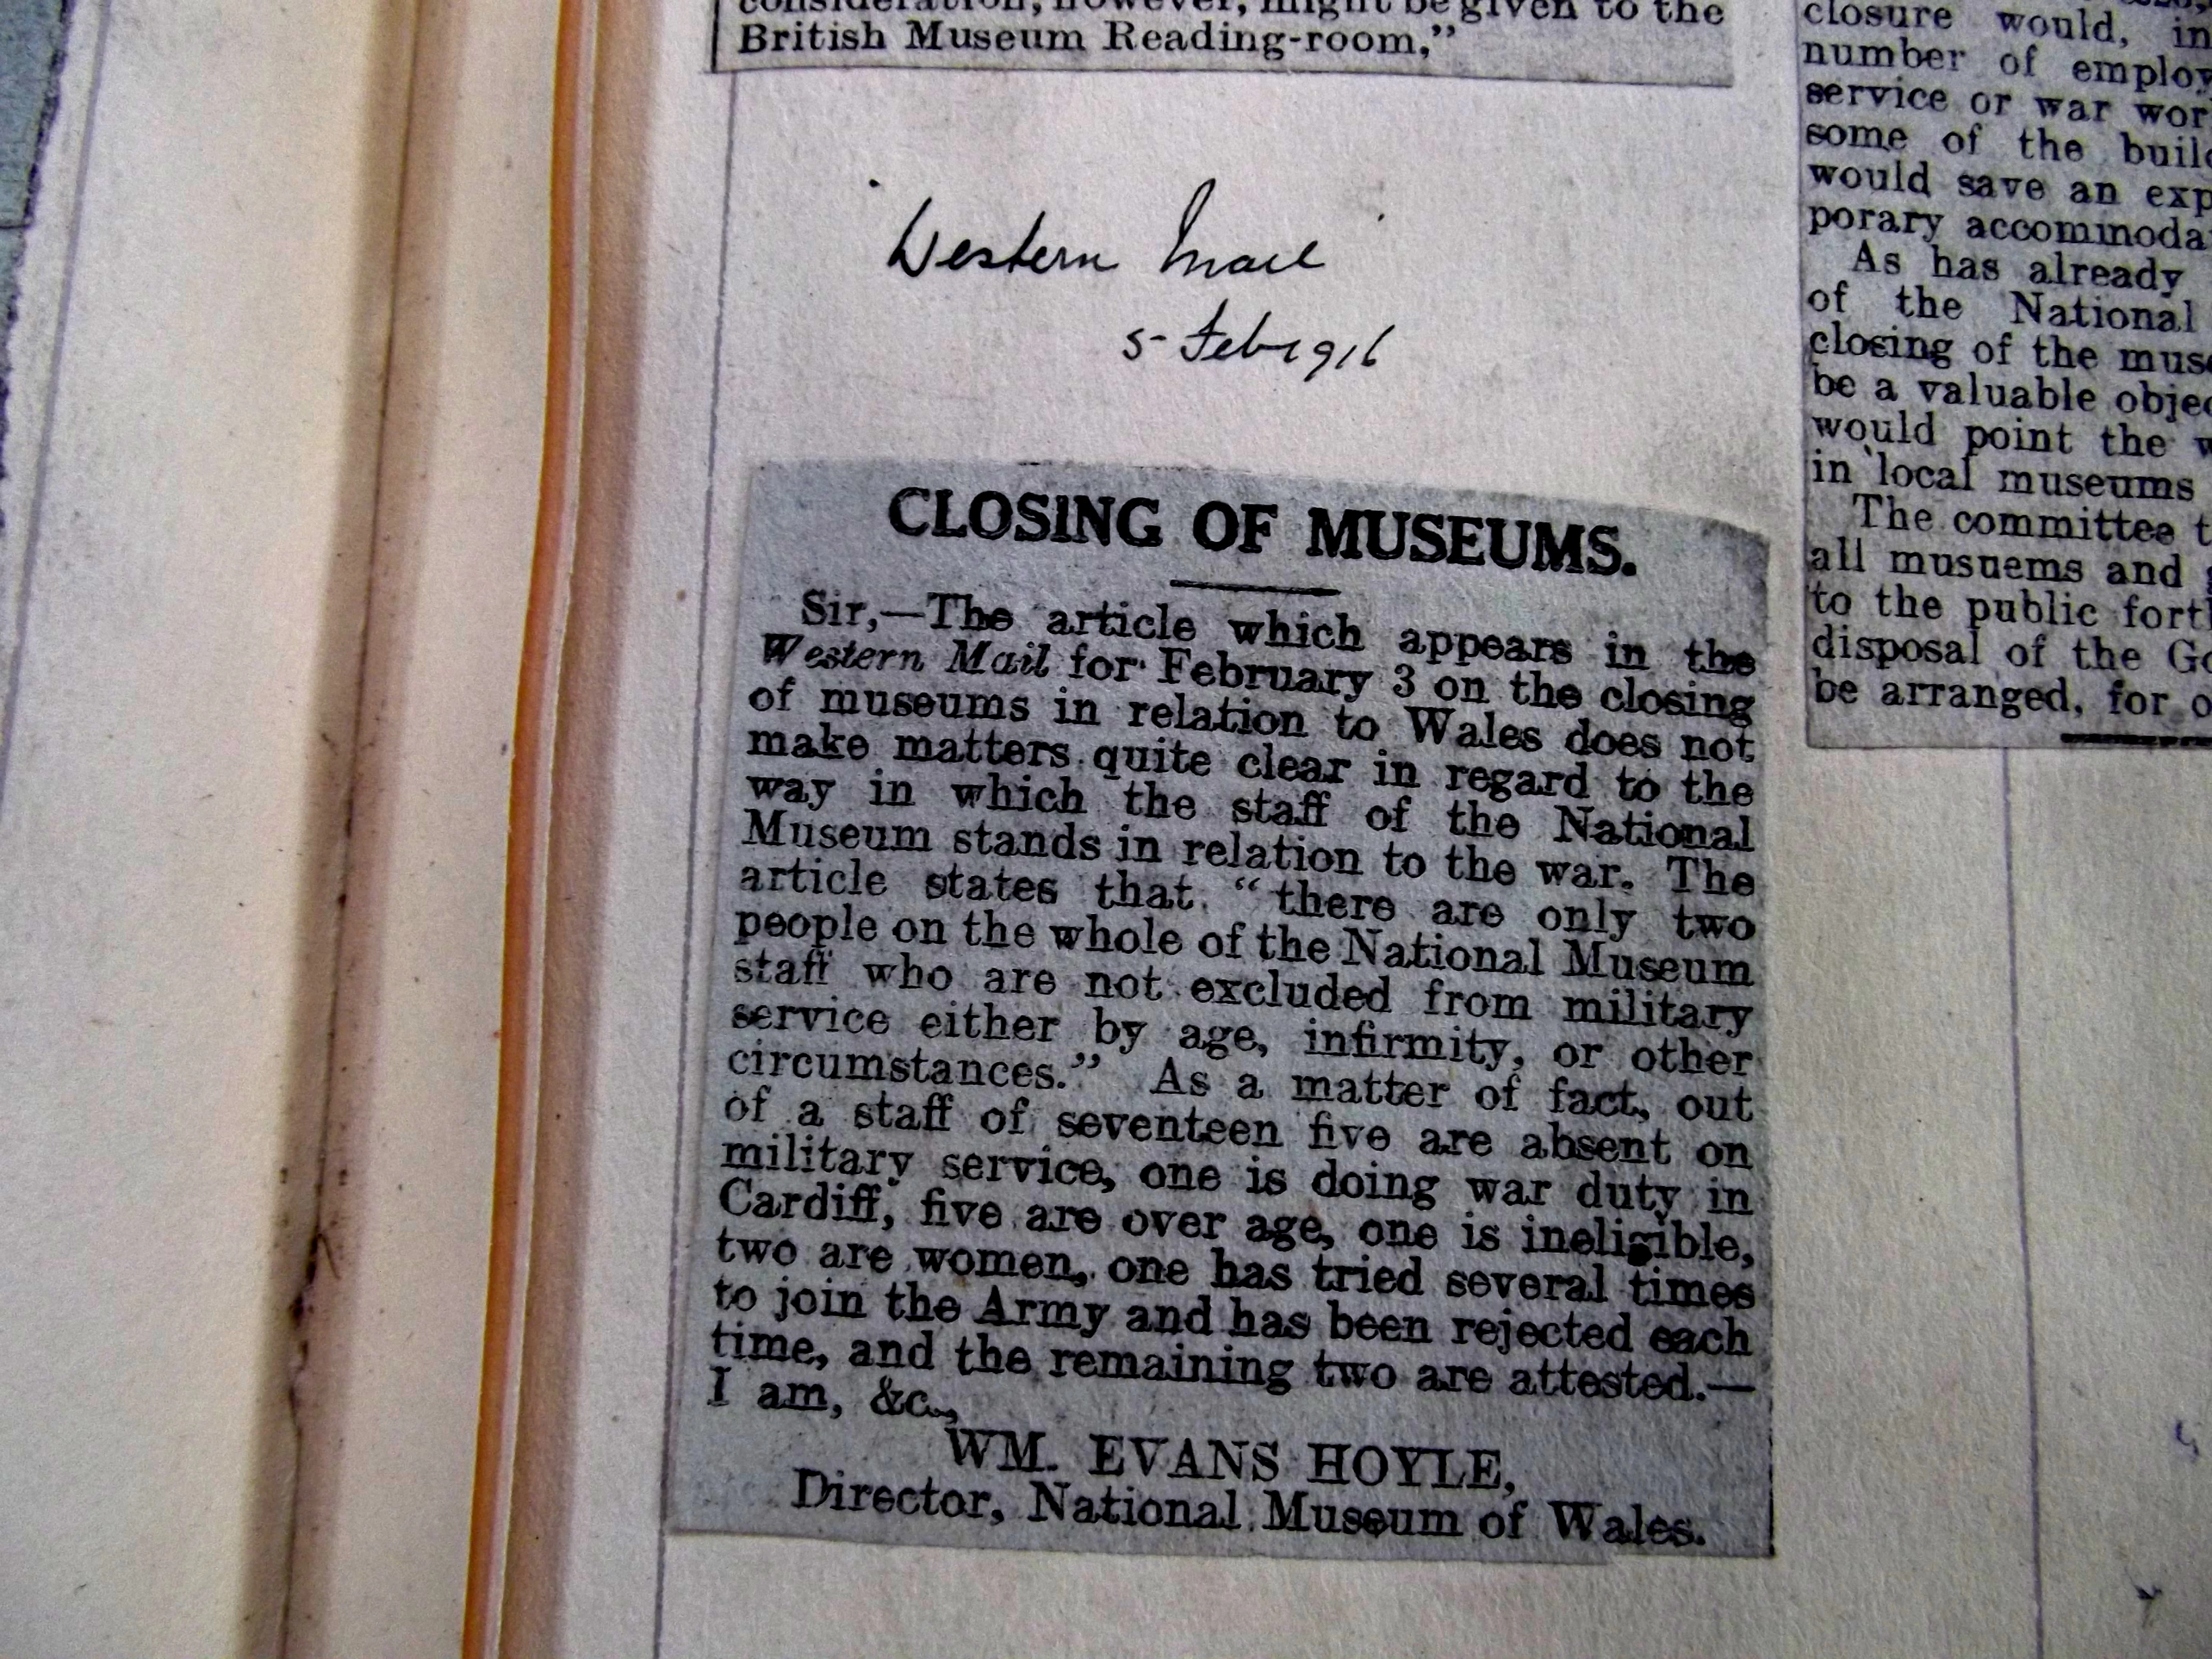 consideration, however, might be given to the
British Museum Reading-room,"
"Western Mail"
5 Feb 1916
CLOSING OF MUSEUMS.
Sir,—The article which appears in the
Western Mail for February 3 on the closing
of museums in relation to Wales does not
make matters quite clear in regard to the
way in which the staff of the National
Museum stands in relation to the war. The
article states that "there are only two
people on the whole of the National Museum
staff who are not excluded from military
service either by age, infirmity, or other
circumstances." As a matter of fact, out
of a staff of seventeen five are absent on
military service, one is doing war duty in
Cardiff, five are over age, one is ineligible,
two are women, one has tried several times
to join the Army and has been rejected each
time, and the remaining two are attested.—
I am, &c.,
WM. EVANS HOYLE,
Director, National Museum of Wales.
closure would, in
number of employ
service or war wor
some of the build
would save an exp
porary accommoda
As has already
of the National
closing of the muse
be a valuable objec
would point the w
in local museums
The committee t
all musuems and g
to the public forth
disposal of the Go
be arranged, for o